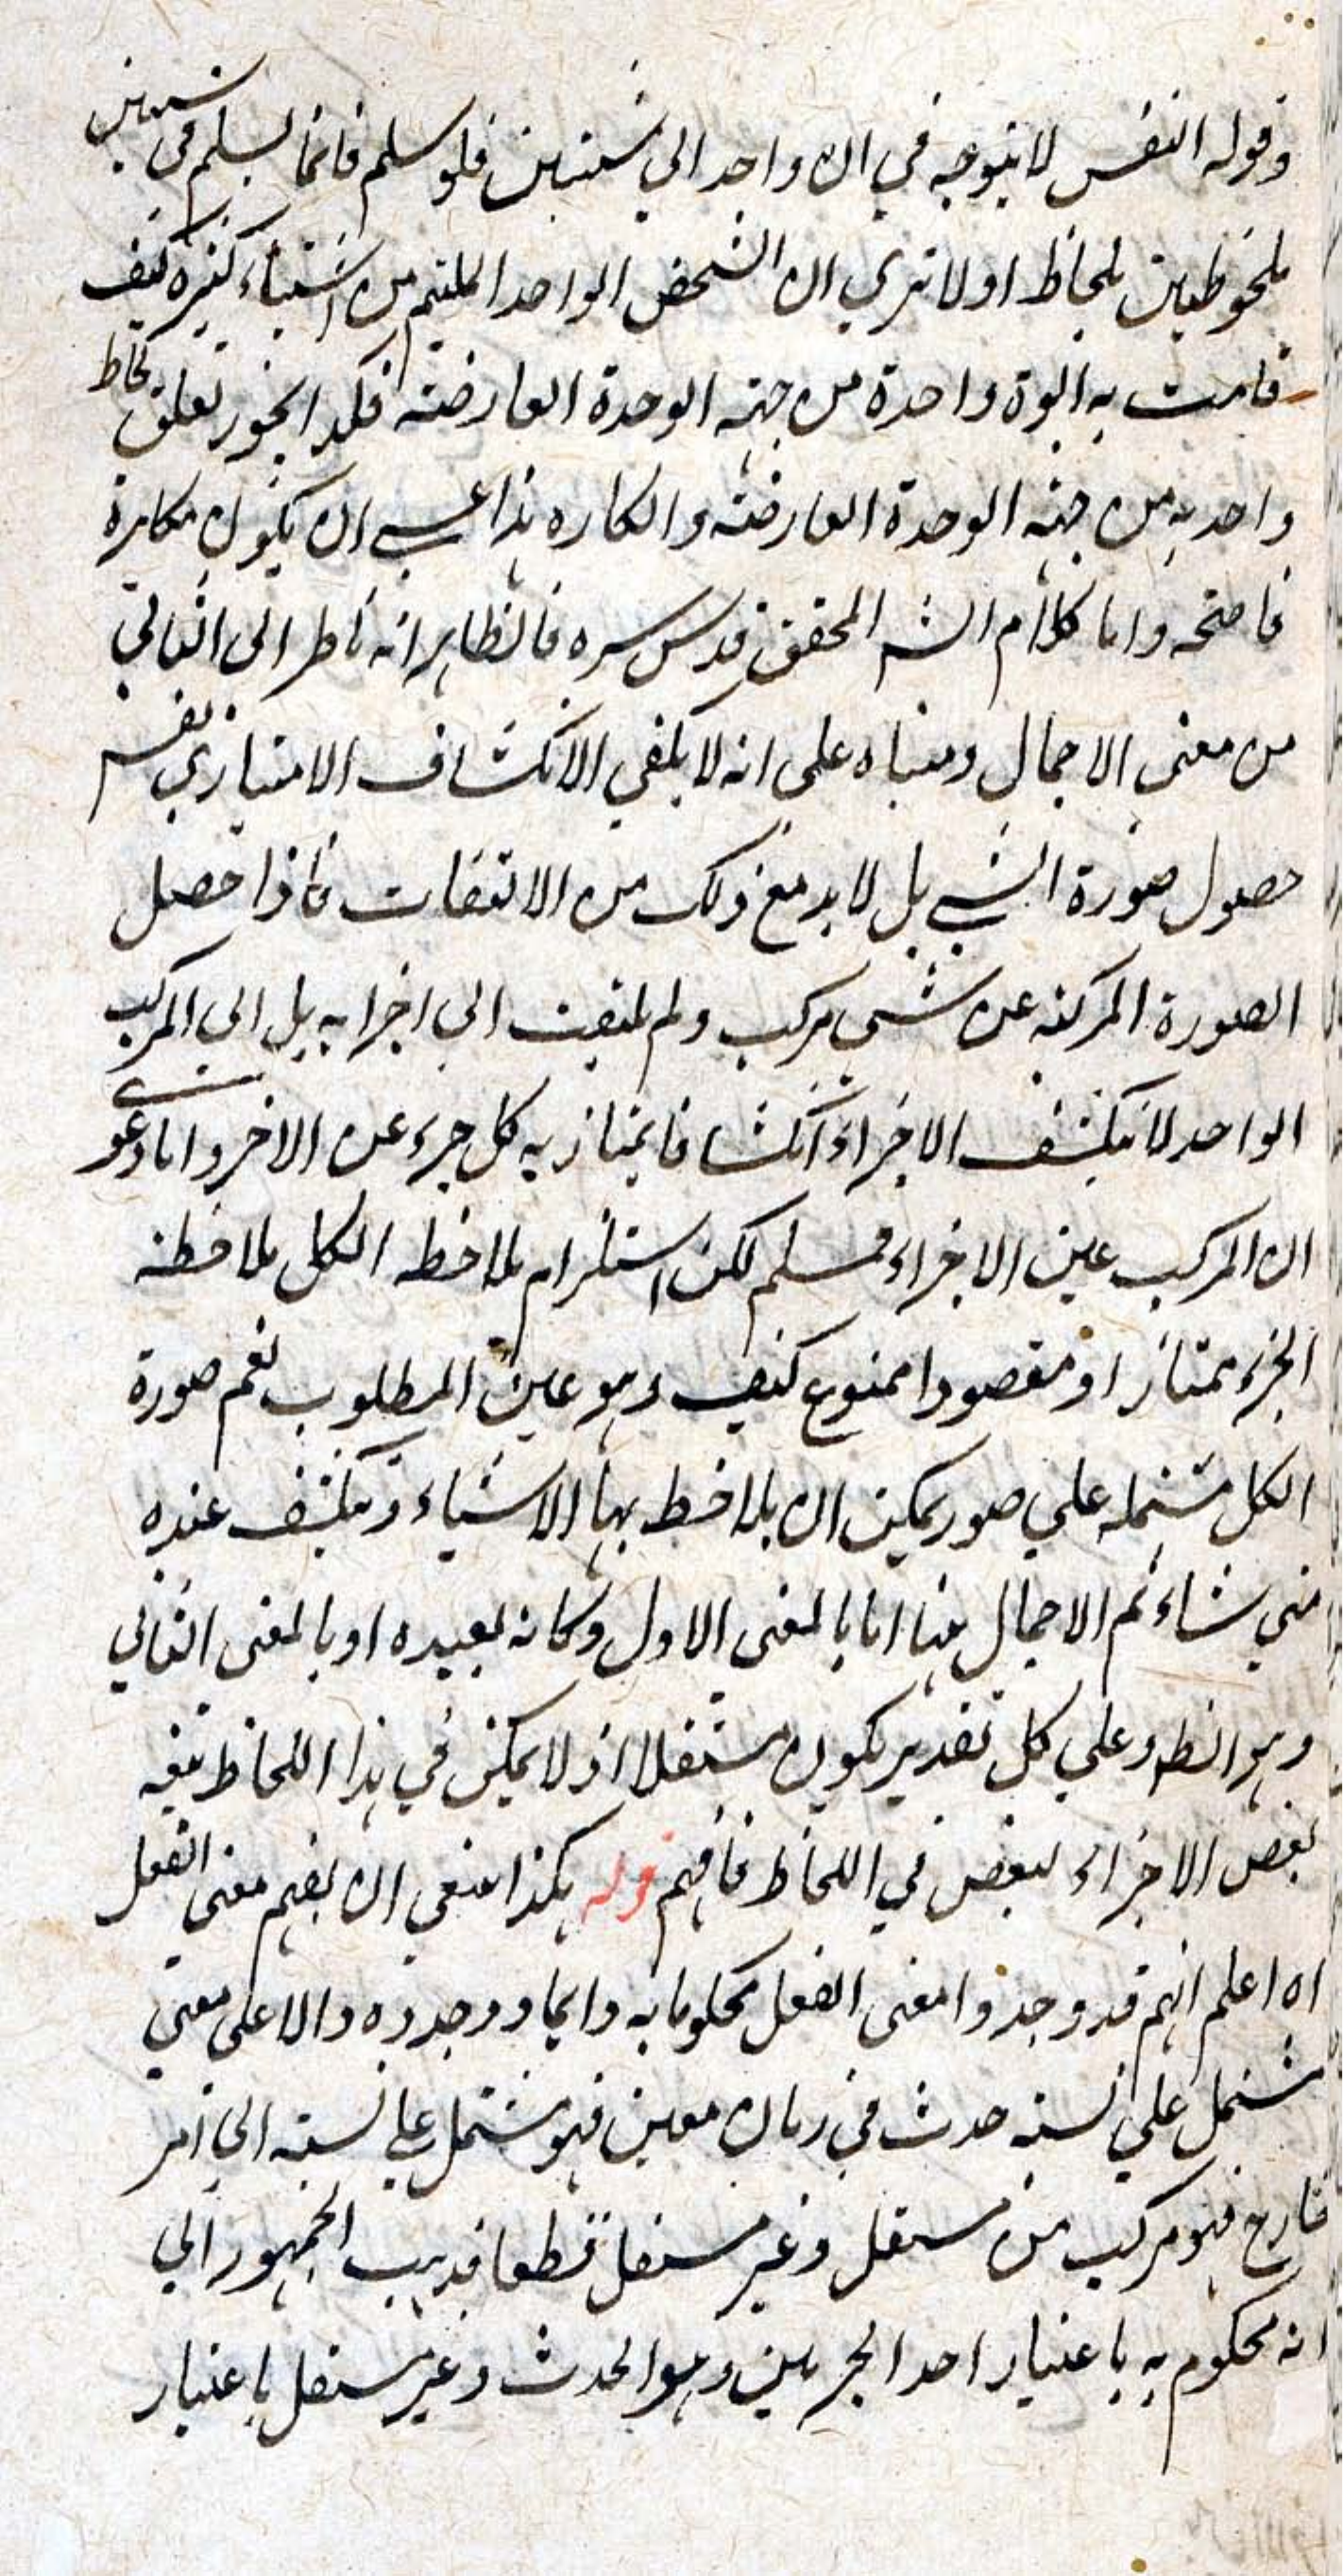 وقوله النفس لا يتوجه في ان واحد الي شيئين فلو سلم فانما يسلم في شيئين
ملحوظين بلحاظ اولا تري ان الشخص الواحد الملتئم من اشياء كثيرة كيف
قامت به ابوة واحدة من جهة الوحدة العارضة فكذا يجوز تعلق لحاظ
واحد به من جهة الوحدة العارضة وانكاره هذا عسى ان يكون مكابرة
فاضحه واما كلام الشـ المحقق قدس سره فالظاهر انه ناظر الى الثاني
من معنى الاجمال ومبناه على انه لا يكفي الانكشاف الامتيازي نفس
حصول صورة الشي بل لا بد مع ذلك من الالتفات فاذا حصل
الصورة المركبة عن شي مركب ولم يلتفت الى اجزائه بل الى المركب
الواحد لا ينكشف الاجزاء انكشافا يمتاز به كل جزء عن الاخر واما دعوى
ان المركب عين الاجزاء فمسلم لكن استلزام ملاحظة الكل ملاحظة
الجزء ممتازا او مقصودا ممنوع كيف وهو عين المطلوب نعم صورة
الكل مشتملة علي صور يمكن ان يلاحظ بها الاشياء وتنكشف عنده
متي شاء ثم الاجمال هنا اما بالمعنى الاول وكانه بعيده او بالمعنى الثاني
وهو الظ وعلي كل تقدير يكون مستقلا اذ لا يمكن في هذا اللحاظ تبعية
بعض الاجزاء لبعض في اللحاظ فافهم قوله هكذا ينبغي ان يفهم معنى الفعل
اه اعلم انهم قد وجدوا معنى الفعل محكوما به دايما ووجدوه دالا على معني
مشتمل علي نسبة حدث في زمان معين فهو مشتمل على نسبة الي امر
خارج فهو مركب من مستقل وغير مستقل قطعا فذهب الجمهور الي
انه محكوم به باعتبار احد الجزئين وهو الحدث وغير مستقل باعتبار